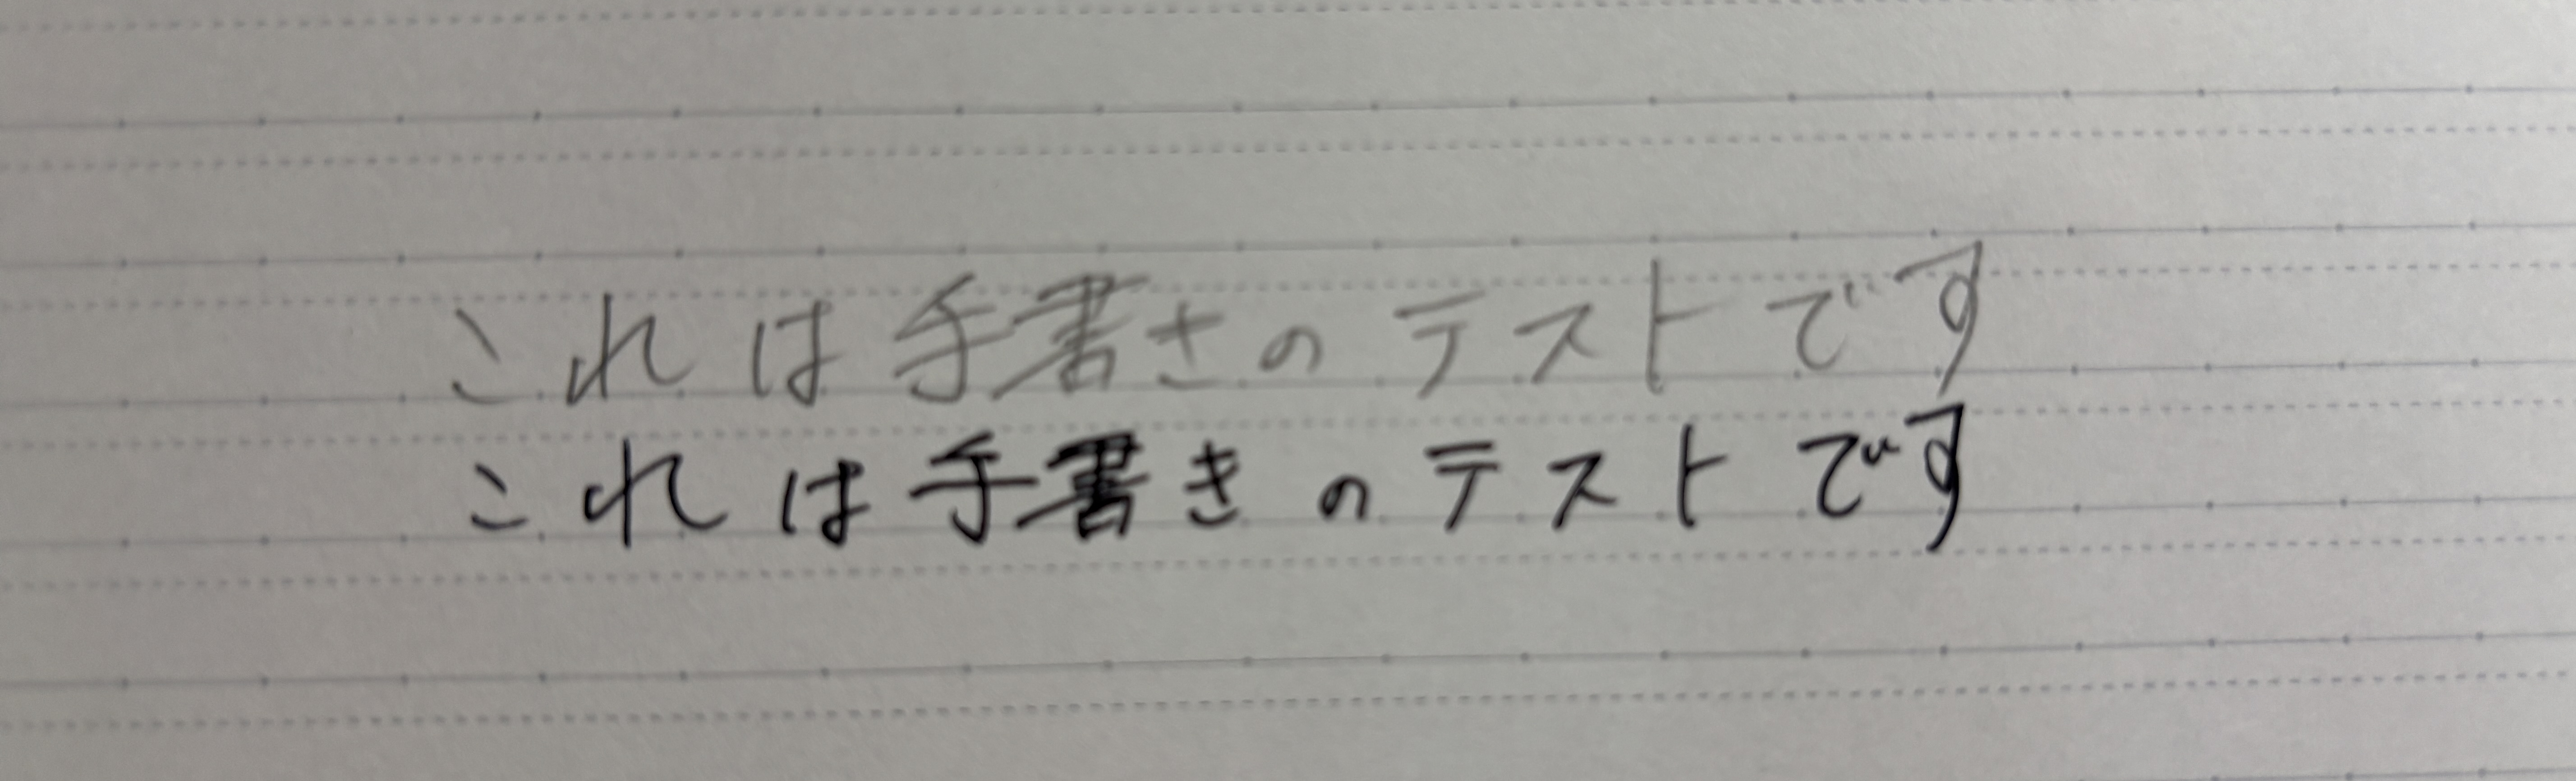 これは手書きのテストです
これは手書きのテストです